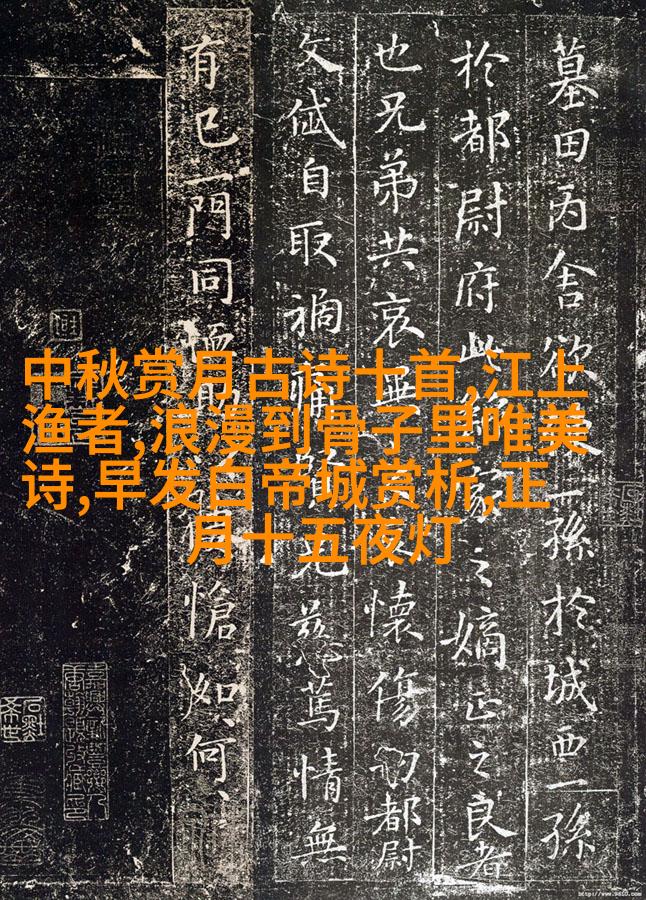 墓田丙舍欲一孫於城西一孫
於都尉府此家之嫡正之良者
也兄弟共哀懷傷切都尉
文岱自取禍兄慈篤情無
有已一門同恤愴如何、
中秋赏月古诗十首,江上
渔者,浪漫到骨子里唯美
诗,早发白帝城赏析,正
月十五夜灯